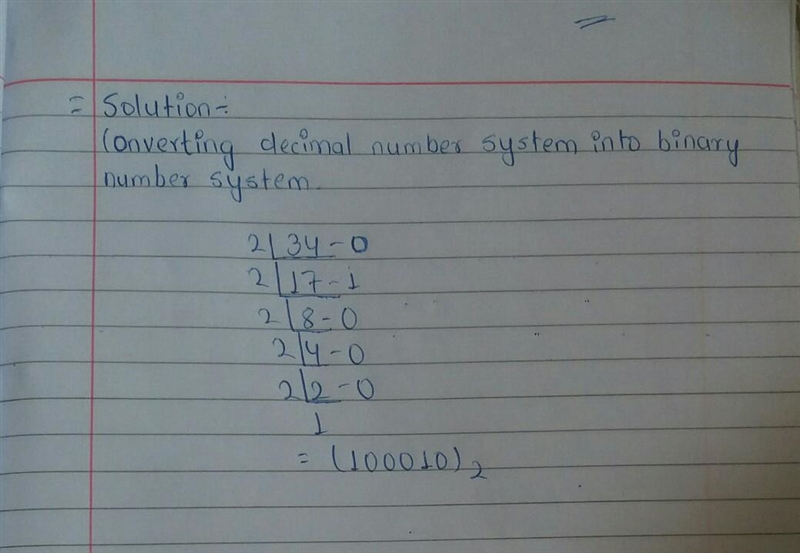 = Solution÷
Converting decimal number system into binary
number system.
2 | 34 - 0
2 | 17 - 1
2 | 8 - 0
2 | 4 - 0
2 | 2 - 0
1
= (100010)₂